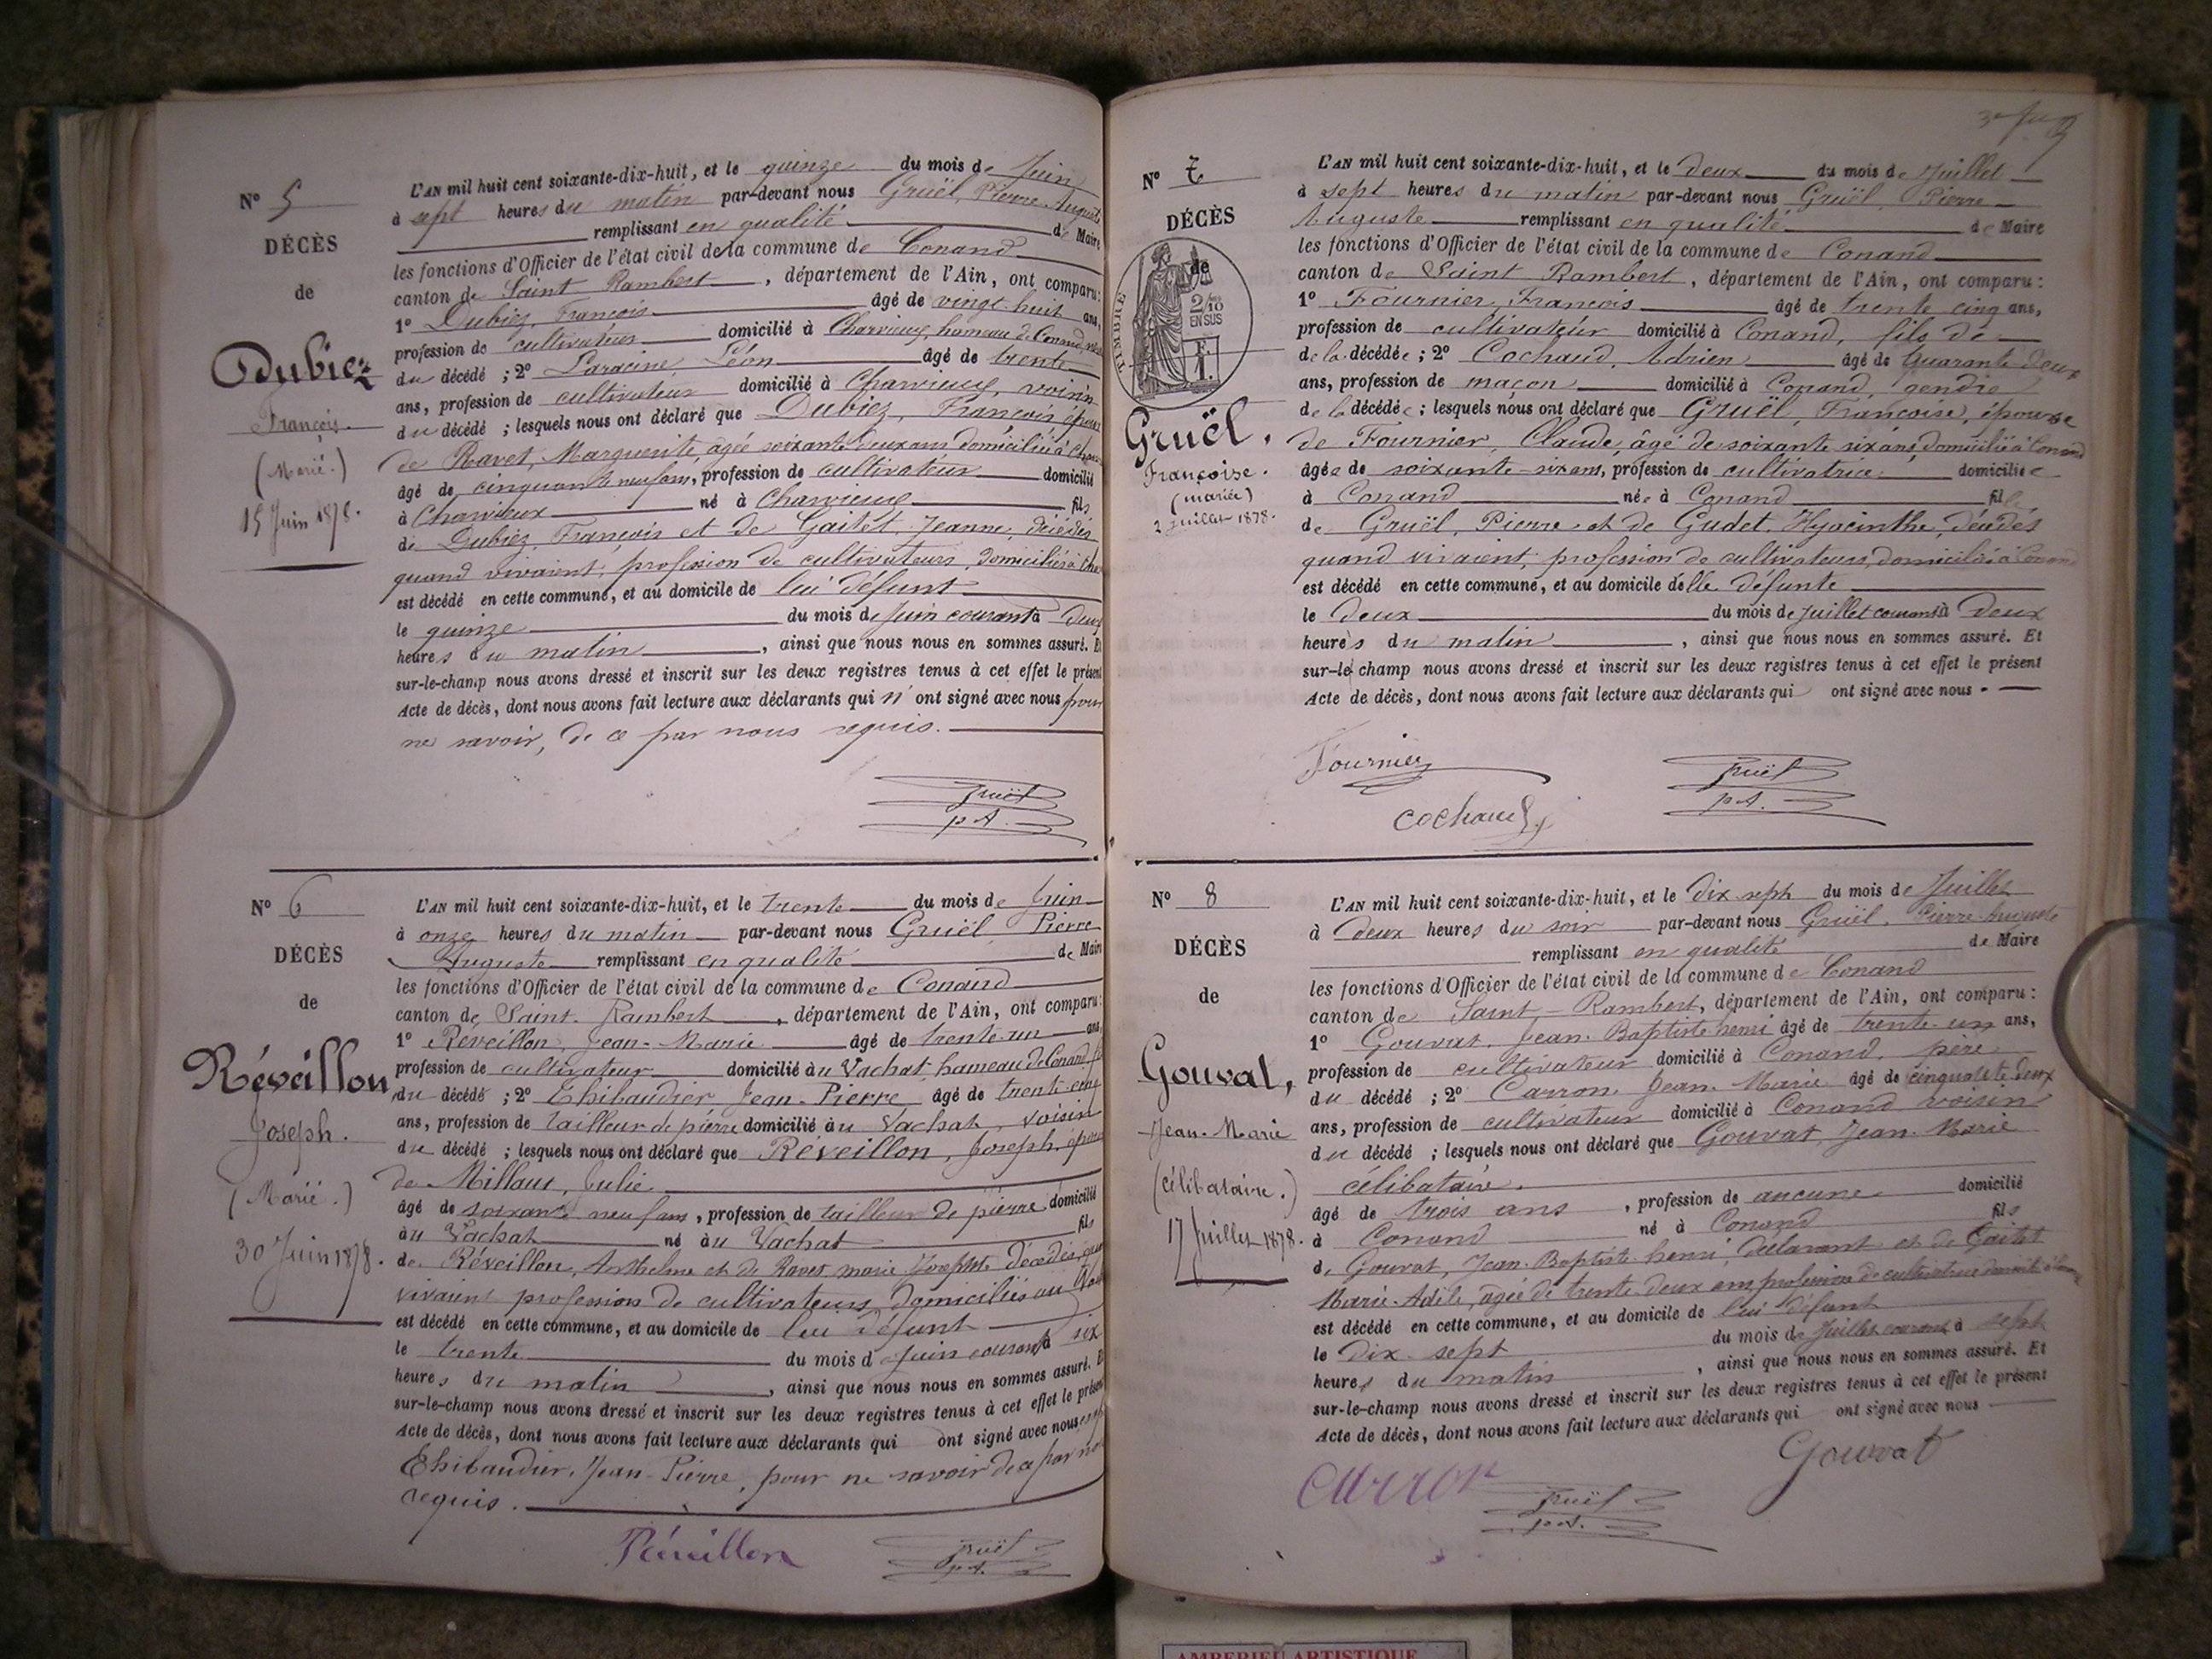 N° 5
DÉCÈS
de
Dubiez
François.
(Marié.)
15 Juin 1878.
L'AN mil huit cent soixante-dix-huit, et le quinze du mois de Juin
à sept heures du matin par-devant nous Gruël, Pierre Auguste
remplissant en qualité de Maire
les fonctions d'Officier de l'état civil de la commune de Conand
canton de Saint Rambert, département de l'Ain, ont comparu:
1° Dubiez, François âgé de vingt-huit ans,
profession de cultivateur domicilié à Charvieux, hameau de Conand,
du décédé ; 2° Laracine, Léon âgé de trente
ans, profession de cultivateur domicilié à Charvieux, voisin
du décédé ; lesquels nous ont déclaré que Dubiez, François, époux
de Ravet, Marguerite, agée soixante deux ans domiciliée à
âgé de cinquante neuf ans, profession de cultivateur domicilié
à Charvieux né à Charvieux fils
de Dubiez, François et de Gaitet, Jeanne, décédés
quand vivaient, profession de cultivateurs, domiciliés à
est décédé en cette commune, et au domicile de lui défunt
le quinze du mois de Juin courant à deux
heures du matin, ainsi que nous nous en sommes assuré. Et
sur-le-champ nous avons dressé et inscrit sur les deux registres tenus à cet effet le présent
Acte de décès, dont nous avons fait lecture aux déclarants qui n'ont signé avec nous pour
ne savoir, de ce par nous requis.
Gruël
p A.
N° 6
DÉCÈS
de
Réveillon
Joseph.
(Marié.)
30 Juin 1878.
L'AN mil huit cent soixante-dix-huit, et le trente du mois de Juin
à onze heures du matin par-devant nous Gruël Pierre
Auguste remplissant en qualité de Maire
les fonctions d'Officier de l'état civil de la commune de Conand
canton de Saint-Rambert, département de l'Ain, ont comparu:
1° Réveillon, Jean-Marie âgé de trente-un ans,
profession de cultivateur domicilié au Vachat, hameau de Conand,
du décédé ; 2° Thibaudier Jean-Pierre âgé de trente-cinq
ans, profession de tailleur de pierre domicilié au Vachat, voisin
du décédé ; lesquels nous ont déclaré que Réveillon, Joseph, époux
de Millaut, Julie
âgé de soixante neuf ans, profession de tailleur de pierre domicilié
au Vachat né au Vachat fils
de Réveillon, Anthelme et de Ravet marie Josephte décédés,
vivaient profession de cultivateurs, domiciliés au
est décédé en cette commune, et au domicile de lui défunt
le trente du mois de Juin courant à six
heures du matin, ainsi que nous nous en sommes assuré. Et
sur-le-champ nous avons dressé et inscrit sur les deux registres tenus à cet effet le présent
Acte de décès, dont nous avons fait lecture aux déclarants qui ont signé avec nous
Thibaudier, Jean-Pierre, pour ne savoir de ce par nous
requis.
Réveillon
Gruël
p A.
N° 7
DÉCÈS
de
TIMBRE
2/10
EN SUS
Gruël,
Françoise.
(mariée)
2 Juillet 1878.
L'AN mil huit cent soixante-dix-huit, et le deux du mois de Juillet
à sept heures du matin par-devant nous Gruël, Pierre
Auguste remplissant en qualité de Maire
les fonctions d'Officier de l'état civil de la commune de Conand
canton de Saint Rambert, département de l'Ain, ont comparu:
1° Fournier, François âgé de trente cinq ans,
profession de cultivateur domicilié à Conand, fils de
de la décédée ; 2° Cochaud, Adrien âgé de Quarante deux
ans, profession de maçon domicilié à Conand, gendre
de la décédée ; lesquels nous ont déclaré que Gruël, Françoise, épouse
de Fournier, Claude, âgé de soixante six ans, domicilié à Conand
âgée de soixante-six ans, profession de cultivatrice domiciliée
à Conand née à Conand fille
de Gruël, Pierre et de Gudet, Hyacinthe, décédés
quand vivaient, profession de cultivateurs, domiciliés à Conand
est décédé en cette commune, et au domicile d'elle défunte
le deux du mois de Juillet courant à deux
heures du matin, ainsi que nous nous en sommes assuré. Et
sur-le-champ nous avons dressé et inscrit sur les deux registres tenus à cet effet le présent
Acte de décès, dont nous avons fait lecture aux déclarants qui ont signé avec nous.
Fournier
Cochaud
Gruël
p A.
N° 8
DÉCÈS
de
Gouvat,
Jean-Marie
(célibataire.)
17 Juillet 1878.
L'AN mil huit cent soixante-dix-huit, et le dix sept du mois de Juillet
à deux heures du soir par-devant nous Gruël, Pierre Auguste
remplissant en qualité de Maire
les fonctions d'Officier de l'état civil de la commune de Conand
canton de Saint-Rambert, département de l'Ain, ont comparu:
1° Gouvat, Jean-Baptiste henri âgé de trente-un ans,
profession de cultivateur domicilié à Conand, père
du décédé ; 2° Carron, Jean-Marie âgé de cinquante deux
ans, profession de cultivateur domicilié à Conand voisin
du décédé ; lesquels nous ont déclaré que Gouvat, Jean-Marie
célibataire.
âgé de trois ans, profession de aucune domicilié
à Conand né à Conand fils
de Gouvat, Jean-Baptiste henri, déclarant et de Gaitet
Marie-Adèle, agée de trente deux ans profession de cultivatrice
est décédé en cette commune, et au domicile de lui défunt
le dix-sept du mois de Juillet courant à sept
heures du matin, ainsi que nous nous en sommes assuré. Et
sur-le-champ nous avons dressé et inscrit sur les deux registres tenus à cet effet le présent
Acte de décès, dont nous avons fait lecture aux déclarants qui ont signé avec nous
Gouvat
Carron
Gruël
p A.
AMBERIEU ARTISTIQUE